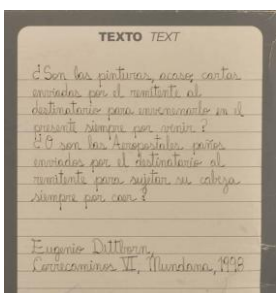 TEXTO TEXT
¿Son las pinturas, acaso, cartas
enviadas por el remitente al
destinatario para envenenarlo en el
presente siempre por venir?
¿O son las Aeropostales, paños
enviados por el destinatario al
remitente para sujetar su cabeza
siempre por caer?
Eugenio Dittborn,
Correcaminos VI, Mundana, 1998